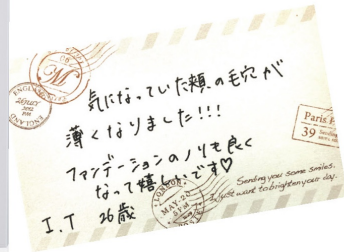 気になっていた頬の毛穴が
薄くなりました!!!
ファンデーションのノリも良く
なって嬉しいです♡
I.T 26歳
Sending you some smiles.
I just want to brighten your day.
Paris
39
LONDON
MAY-20
ENGLAND
M